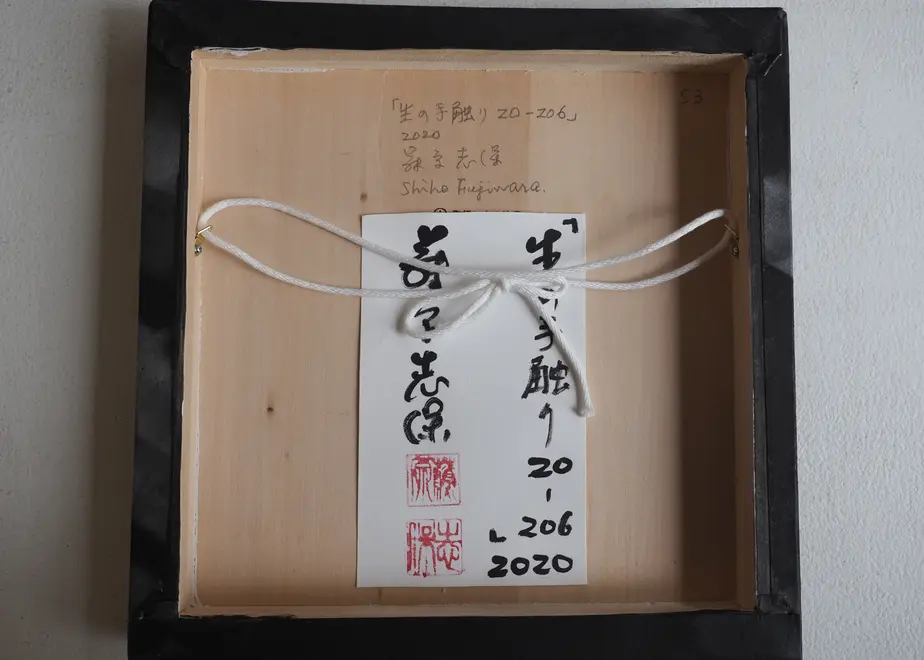 S3
「生の手触り 20-206」
2020
藤原志保
Shiho Fujiwara.
「生の手触り20-206」
2020
藤原志保
藤原
志保